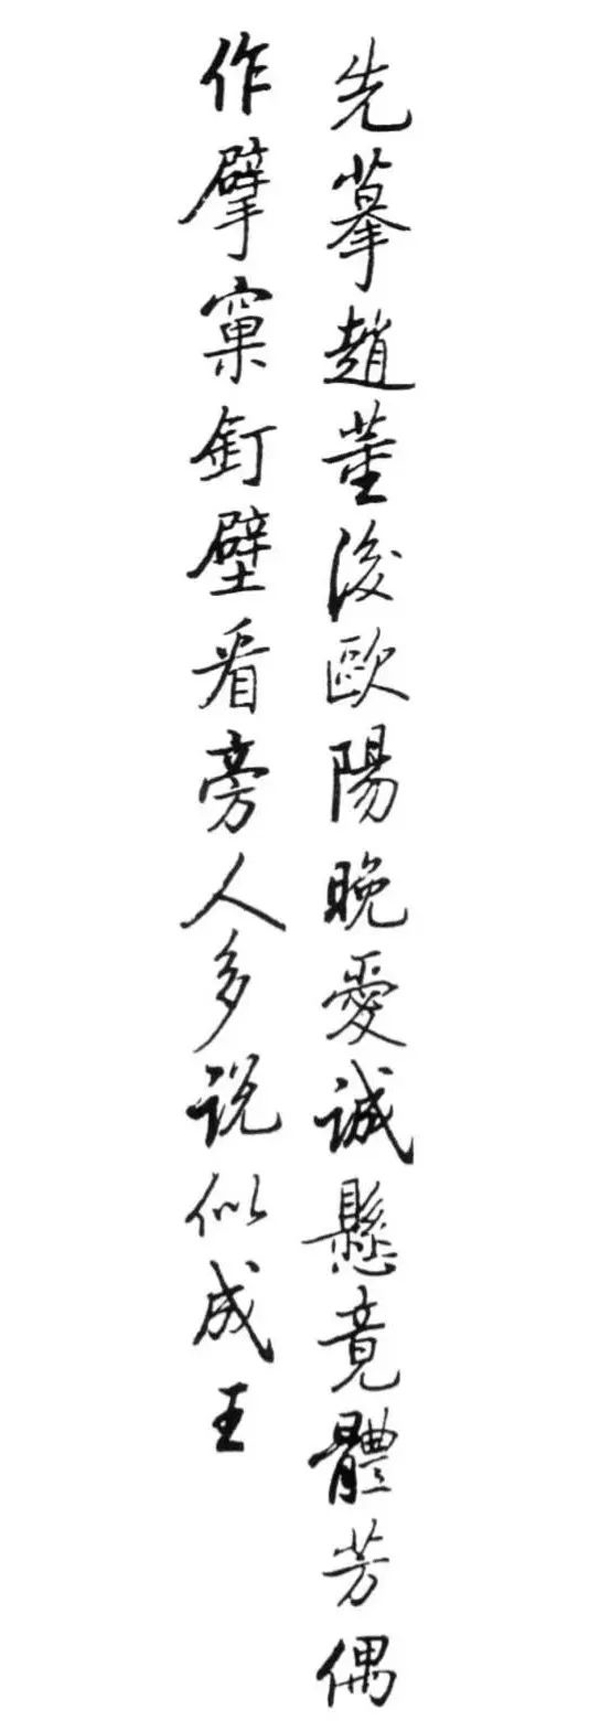 先摹趙董後歐陽晚愛誠懸竟體芳偶
作擘窠釘壁看旁人多説似成王